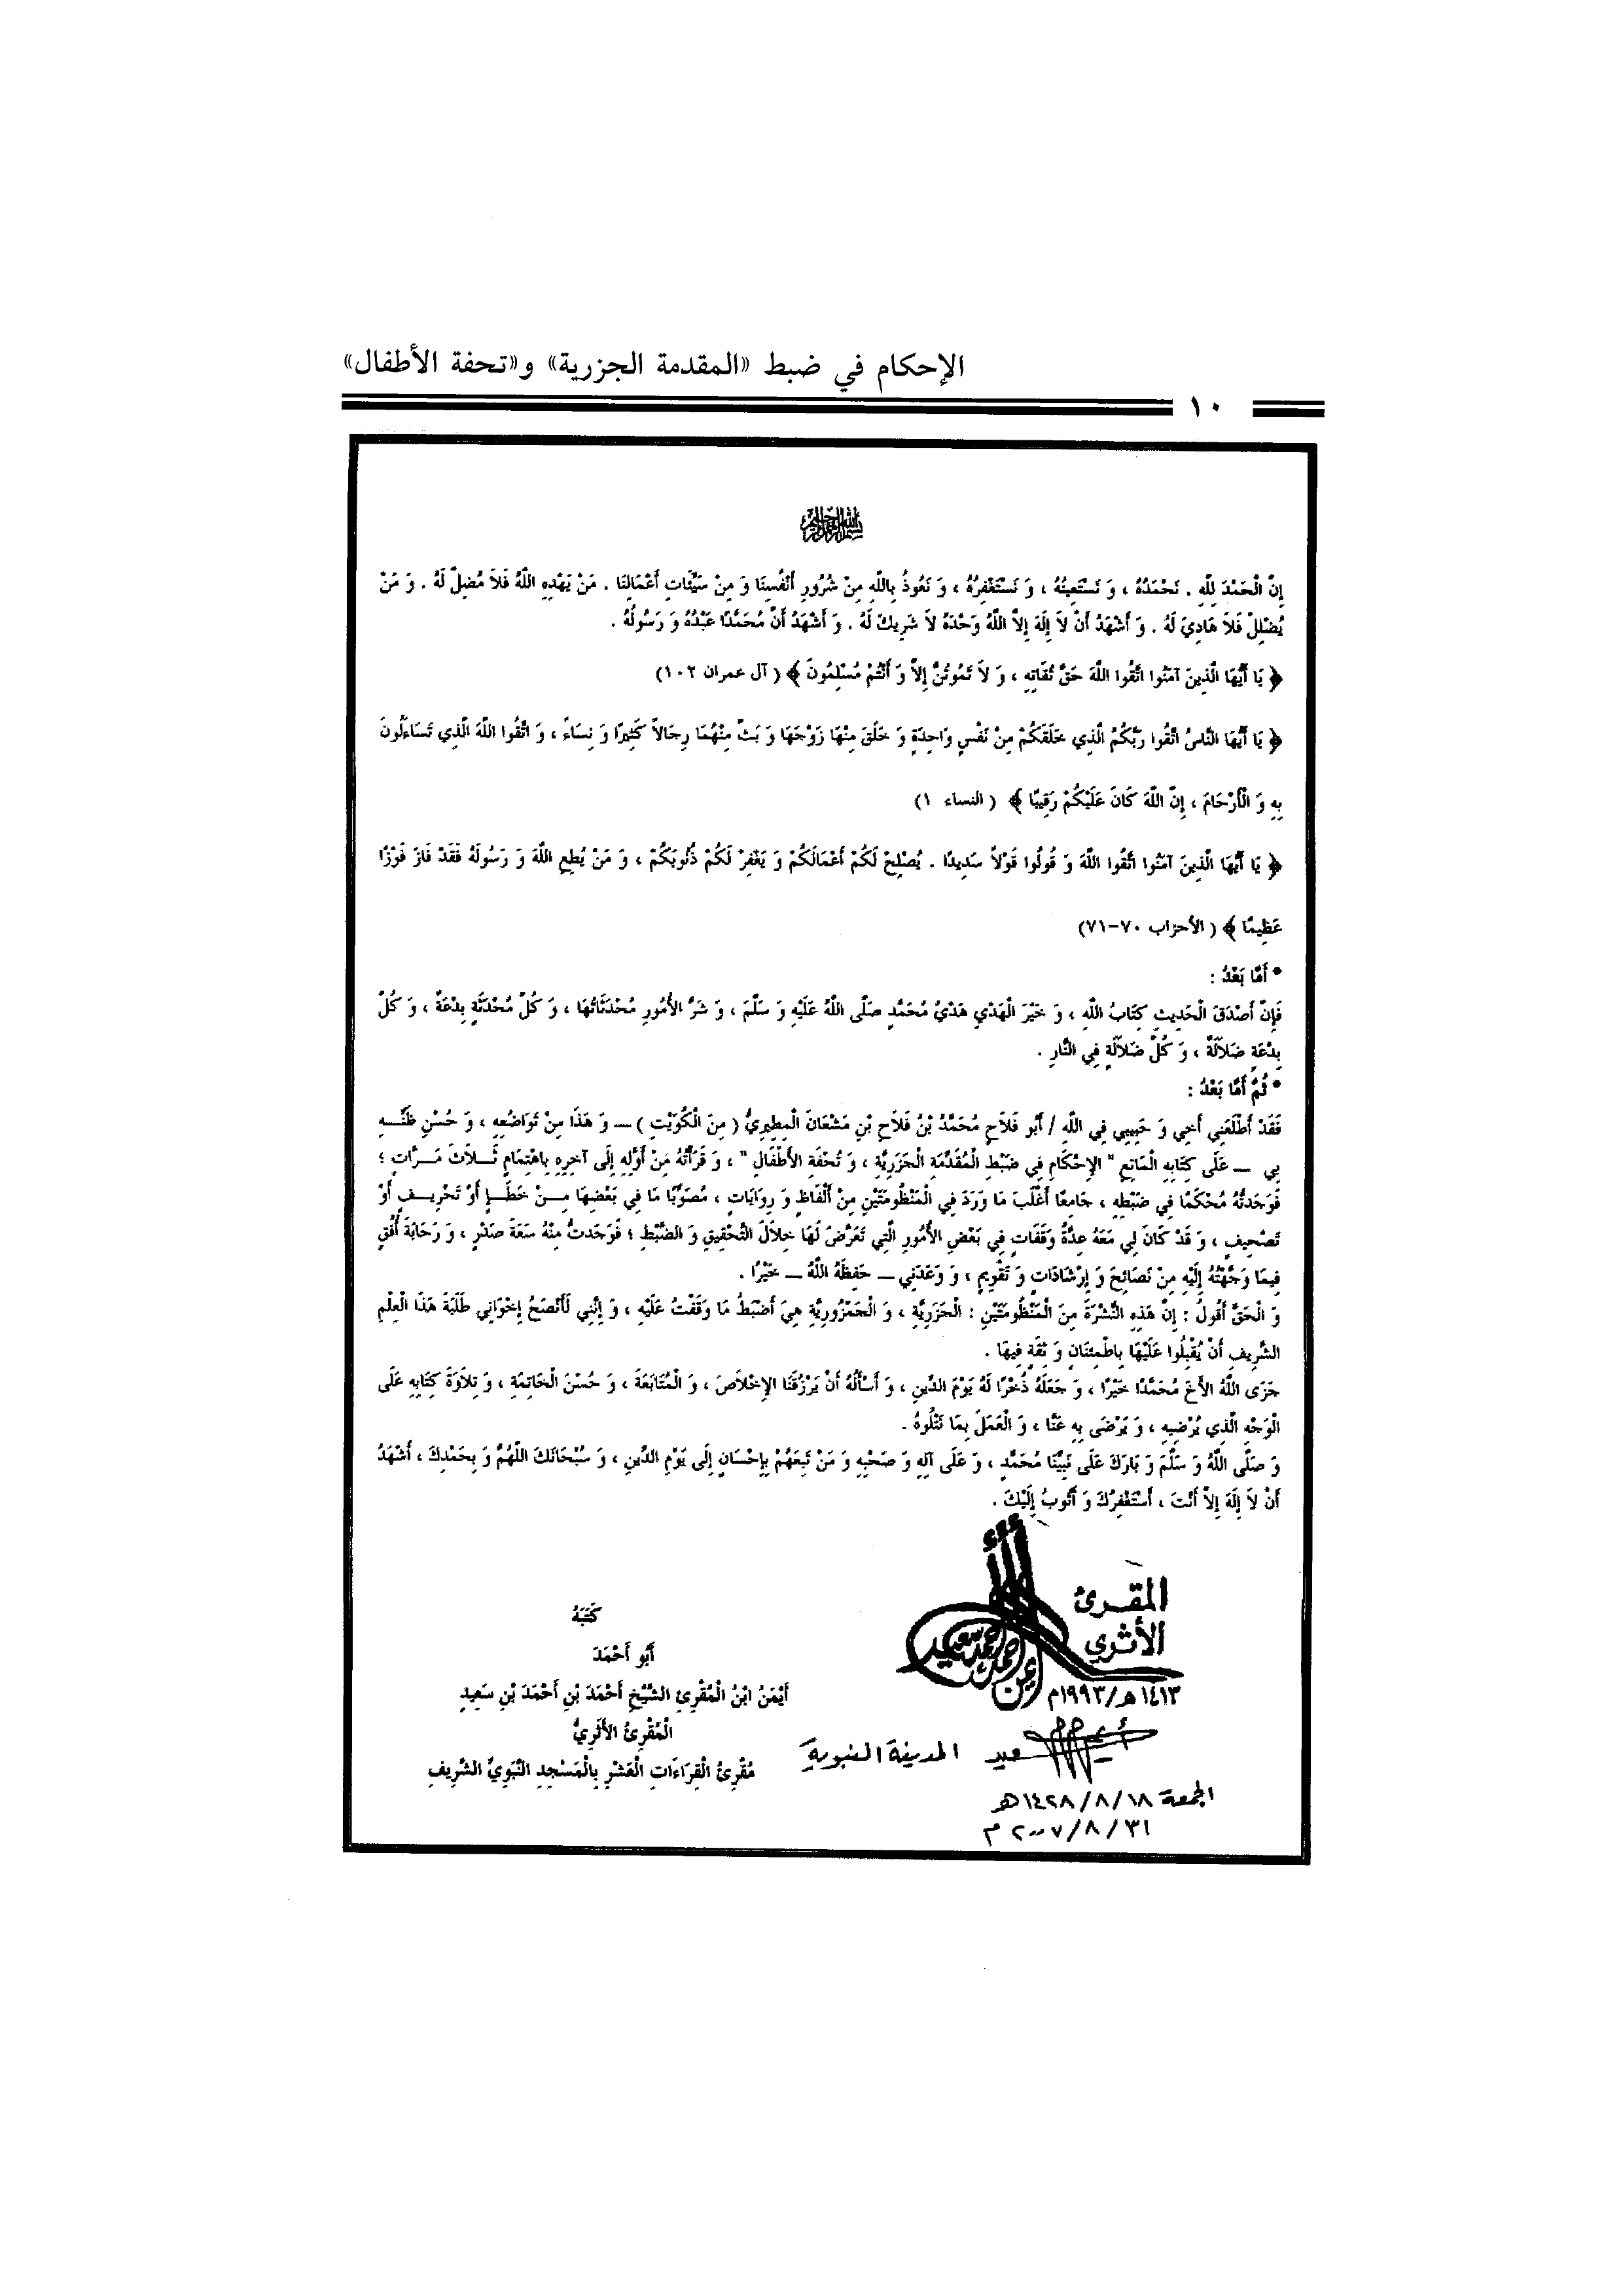 الإحكام في ضبط «المقدمة الجزرية» و«تحفة الأطفال»
١٠
بسم الله الرحمن الرحيم
إِنَّ الْحَمْدَ لِلَّهِ . نَحْمَدُهُ ، وَ نَسْتَعِينُهُ ، وَ نَسْتَغْفِرُهُ ، وَ نَعُوذُ بِاللَّهِ مِنْ شُرُورِ أَنْفُسِنَا وَ مِنْ سَيِّئَاتِ أَعْمَالِنَا . مَنْ يَهْدِهِ اللَّهُ فَلاَ مُضِلَّ لَهُ . وَ مَنْ
يُضْلِلْ فَلاَ هَادِيَ لَهُ . وَ أَشْهَدُ أَنْ لاَ إِلَهَ إِلاَّ اللَّهُ وَحْدَهُ لاَ شَرِيكَ لَهُ . وَ أَشْهَدُ أَنَّ مُحَمَّدًا عَبْدُهُ وَ رَسُولُهُ .
﴿ يَا أَيُّهَا الَّذِينَ آمَنُوا اتَّقُوا اللَّهَ حَقَّ تُقَاتِهِ ، وَ لاَ تَمُوتُنَّ إِلاَّ وَ أَنْتُمْ مُسْلِمُونَ ﴾ ( آل عمران ١٠٢)
﴿ يَا أَيُّهَا النَّاسُ اتَّقُوا رَبَّكُمُ الَّذِي خَلَقَكُمْ مِنْ نَفْسٍ وَاحِدَةٍ وَ خَلَقَ مِنْهَا زَوْجَهَا وَ بَثَّ مِنْهُمَا رِجَالاً كَثِيرًا وَ نِسَاءً ، وَ اتَّقُوا اللَّهَ الَّذِي تَسَاءَلُونَ
بِهِ وَ الْأَرْحَامَ ، إِنَّ اللَّهَ كَانَ عَلَيْكُمْ رَقِيبًا ﴾ ( النساء ١)
﴿ يَا أَيُّهَا الَّذِينَ آمَنُوا اتَّقُوا اللَّهَ وَ قُولُوا قَوْلاً سَدِيدًا . يُصْلِحْ لَكُمْ أَعْمَالَكُمْ وَ يَغْفِرْ لَكُمْ ذُنُوبَكُمْ ، وَ مَنْ يُطِعِ اللَّهَ وَ رَسُولَهُ فَقَدْ فَازَ فَوْزًا
عَظِيمًا ﴾ ( الأحزاب ٧٠-٧١)
* أَمَّا بَعْدُ :
فَإِنَّ أَصْدَقَ الْحَدِيثِ كِتَابُ اللَّهِ ، وَ خَيْرَ الْهَدْيِ هَدْيُ مُحَمَّدٍ صَلَّى اللَّهُ عَلَيْهِ وَ سَلَّمَ ، وَ شَرَّ الأُمُورِ مُحْدَثَاتُهَا ، وَ كُلَّ مُحْدَثَةٍ بِدْعَةٌ ، وَ كُلَّ
بِدْعَةٍ ضَلاَلَةٌ ، وَ كُلَّ ضَلاَلَةٍ فِي النَّارِ .
* ثُمَّ أَمَّا بَعْدُ :
فَقَدْ أَطْلَعَنِي أَخِي وَ حَبِيبِي فِي اللَّهِ / أَبُو فَلاَحٍ مُحَمَّدُ بْنُ فَلاَحِ بْنِ مَشْعَانَ الْمِطِيرِيُّ ( مِنَ الْكُوَيْتِ ) ـــ وَ هَذَا مِنْ تَوَاضُعِهِ ، وَ حُسْنِ ظَنِّـــهِ
بِي ـــ عَلَى كِتَابِهِ الْمَاتِعِ " الإِحْكَامِ فِي ضَبْطِ الْمُقَدِّمَةِ الْجَزَرِيَّةِ ، وَ تُحْفَةِ الأَطْفَالِ " ، وَ قَرَأْتُهُ مِنْ أَوَّلِهِ إِلَى آخِرِهِ بِاهْتِمَامٍ ثَـــلاَثَ مَـــرَّاتٍ ؛
فَوَجَدتُّهُ مُحْكَمًا فِي ضَبْطِهِ ، جَامِعًا أَغْلَبَ مَا وَرَدَ فِي الْمَنْظُومَتَيْنِ مِنْ أَلْفَاظٍ وَ رِوَايَاتٍ ، مُصَوِّبًا مَا فِي بَعْضِهَا مِـــنْ خَطَـــإٍ أَوْ تَحْرِيـــفٍ أَوْ
تَصْحِيفٍ ، وَ قَدْ كَانَ لِي مَعَهُ عِدَّةُ وَقَفَاتٍ فِي بَعْضِ الأُمُورِ الَّتِي تَعَرَّضَ لَهَا خِلاَلَ التَّحْقِيقِ وَ الضَّبْطِ ؛ فَوَجَدتُّ مِنْهُ سَعَةَ صَدْرٍ ، وَ رَحَابَةَ أُفُقٍ
فِيمَا وَجَّهْتُهُ إِلَيْهِ مِنْ نَصَائِحَ وَ إِرْشَادَاتٍ وَ تَقْوِيمٍ ، وَ وَعَدَنِي ـــ حَفِظَهُ اللَّهُ ـــ خَيْرًا .
وَ الْحَقَّ أَقُولُ : إِنَّ هَذِهِ النَّشْرَةَ مِنَ الْمَنْظُومَتَيْنِ : الْجَزَرِيَّةِ ، وَ الْجَمْزُورِيَّةِ هِيَ أَضْبَطُ مَا وَقَفْتُ عَلَيْهِ ، وَ إِنَّنِي لَأَنْصَحُ إِخْوَانِي طَلَبَةَ هَذَا الْعِلْمِ
الشَّرِيفِ أَنْ يُقْبِلُوا عَلَيْهَا بِاطْمِئْنَانٍ وَ ثِقَةٍ فِيهَا .
جَزَى اللَّهُ الأَخَ مُحَمَّدًا خَيْرًا ، وَ جَعَلَهُ ذُخْرًا لَهُ يَوْمَ الدِّينِ ، وَ أَسْأَلُهُ أَنْ يَرْزُقَنَا الإِخْلاَصَ ، وَ الْمُتَابَعَةَ ، وَ حُسْنَ الْخَاتِمَةِ ، وَ تِلاَوَةَ كِتَابِهِ عَلَى
الْوَجْهِ الَّذِي يُرْضِيهِ ، وَ يَرْضَى بِهِ عَنَّا ، وَ الْعَمَلَ بِمَا نَتْلُوهُ .
وَ صَلَّى اللَّهُ وَ سَلَّمَ وَ بَارَكَ عَلَى نَبِيِّنَا مُحَمَّدٍ ، وَ عَلَى آلِهِ وَ صَحْبِهِ وَ مَنْ تَبِعَهُمْ بِإِحْسَانٍ إِلَى يَوْمِ الدِّينِ ، وَ سُبْحَانَكَ اللَّهُمَّ وَ بِحَمْدِكَ ، أَشْهَدُ
أَنْ لاَ إِلَهَ إِلاَّ أَنْتَ ، أَسْتَغْفِرُكَ وَ أَتُوبُ إِلَيْكَ .
المقـرئ
الأثري
أيمن أحمد أحمد سعيد
١٤١٣هـ/١٩٩٣م
المدينة النبوية
الجمعة ١٨/ ٨/ ١٤٢٨هـ
٣١/ ٨/ ٢٠٠٧ م
كَتَبَهُ
أَبُو أَحْمَدَ
أَيْمَنُ ابْنُ الْمُقْرِئِ الشَّيْخِ أَحْمَدَ بْنِ أَحْمَدَ بْنِ سَعِيدٍ
الْمُقْرِئُ الأَثَرِيُّ
مُقْرِئُ الْقِرَاءَاتِ الْعَشْرِ بِالْمَسْجِدِ النَّبَوِيِّ الشَّرِيفِ